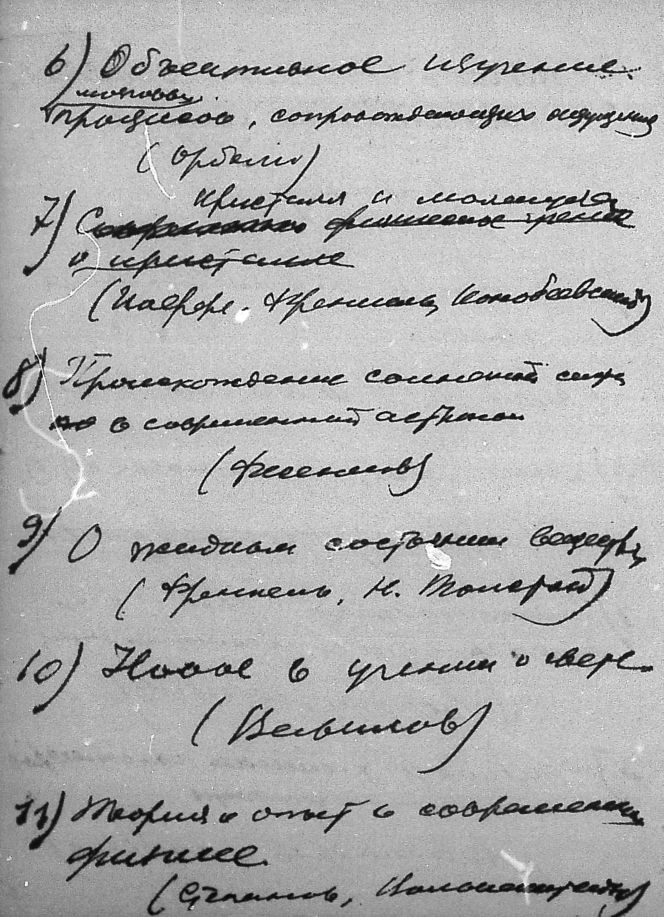 6) Объективное изучение
процессов, сопровождающих ощущение
(Орбели)
Кристалл и молекула
7) Современное физическое учение
о кристалле
(Иоффе, Френкель, Конобеевский)
8) Происхождение солнечной сист.
в современной астроном
(Фесенков)
9) О жидком состоянии вещества
(Френкель, Н.
10) Новое в учении о свете.
(Вавилов)
11) Теория и опыт в современной
физике.
(Степанов,